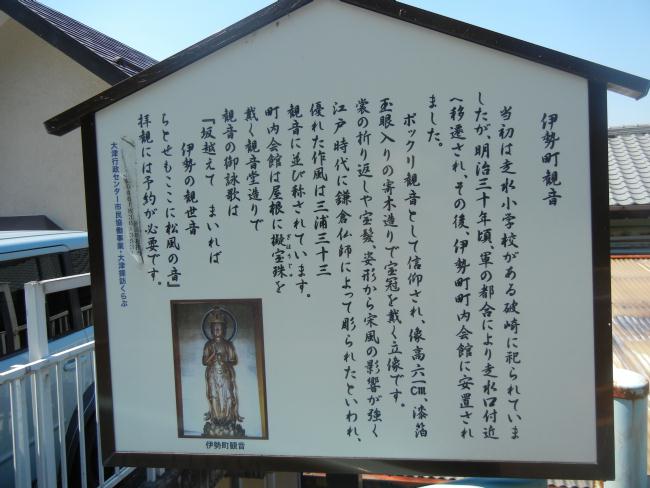 伊勢町観音
当初は走水小学校がある破崎に祀られていま
したが、明治三十年頃、軍の都合により走水口付近
へ移遷され、その後、伊勢町町内会館に安置され
ました。
ポックリ観音として信仰され、像高六一㎝、漆箔
玉眼入りの寄木造りで宝冠を戴く立像です。
裳の折り返しや宝髪、姿形から宋風の影響が強く
江戸時代に鎌倉仏師によって彫られたといわれ、
優れた作風は三浦三十三
観音に並び称されています。
町内会館は屋根に擬宝珠を
ぎほうしゅ
戴く観音堂造りで
観音の御詠歌は
『坂越えて まいれば
伊勢の観世音
らとせもここに松風の音』
拝観には予約が必要です。
大津行政センター市民協働事業・大津探訪くらぶ
伊勢町観音